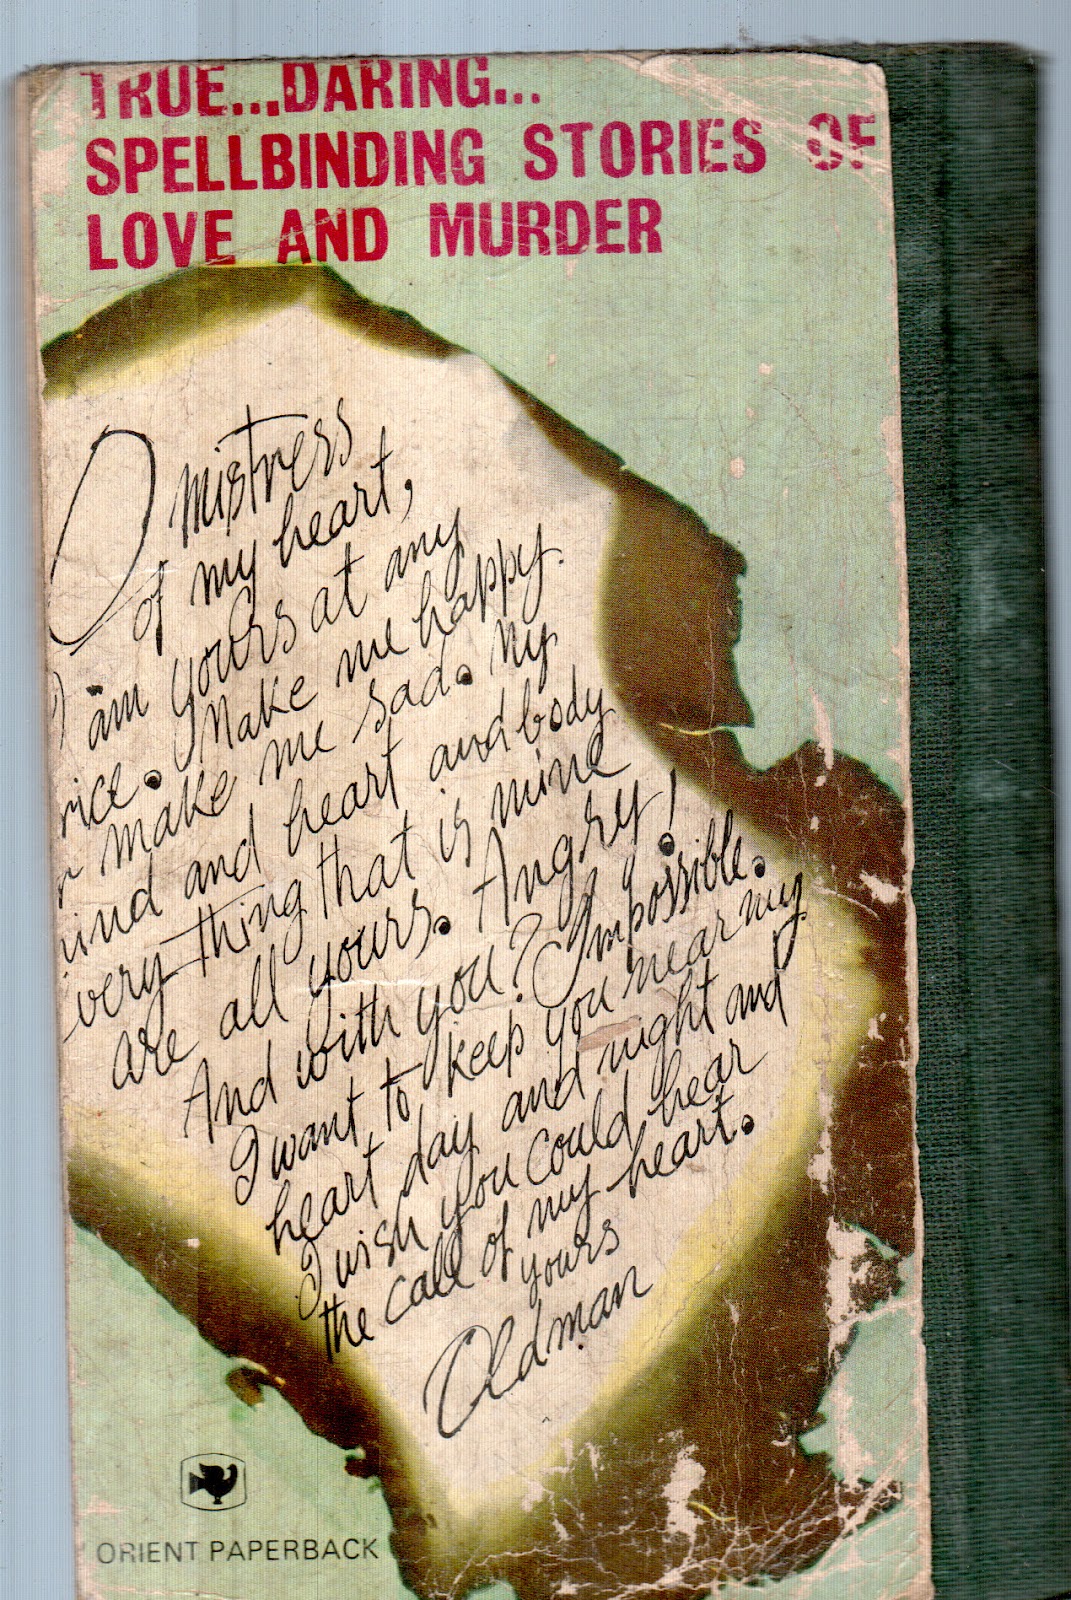 TRUE...DARING...
SPELLBINDING STORIES OF
LOVE AND MURDER
O mistress
of my heart,
I am yours at any
rice. Make me happy.
r make me sad. My
ind and heart and body
very thing that is mine
are all yours. Angry!
And with you? Impossible.
I want to keep you near my
heart day and night and
I wish you could hear
the call of my heart.
yours
Oldman
ORIENT PAPERBACK